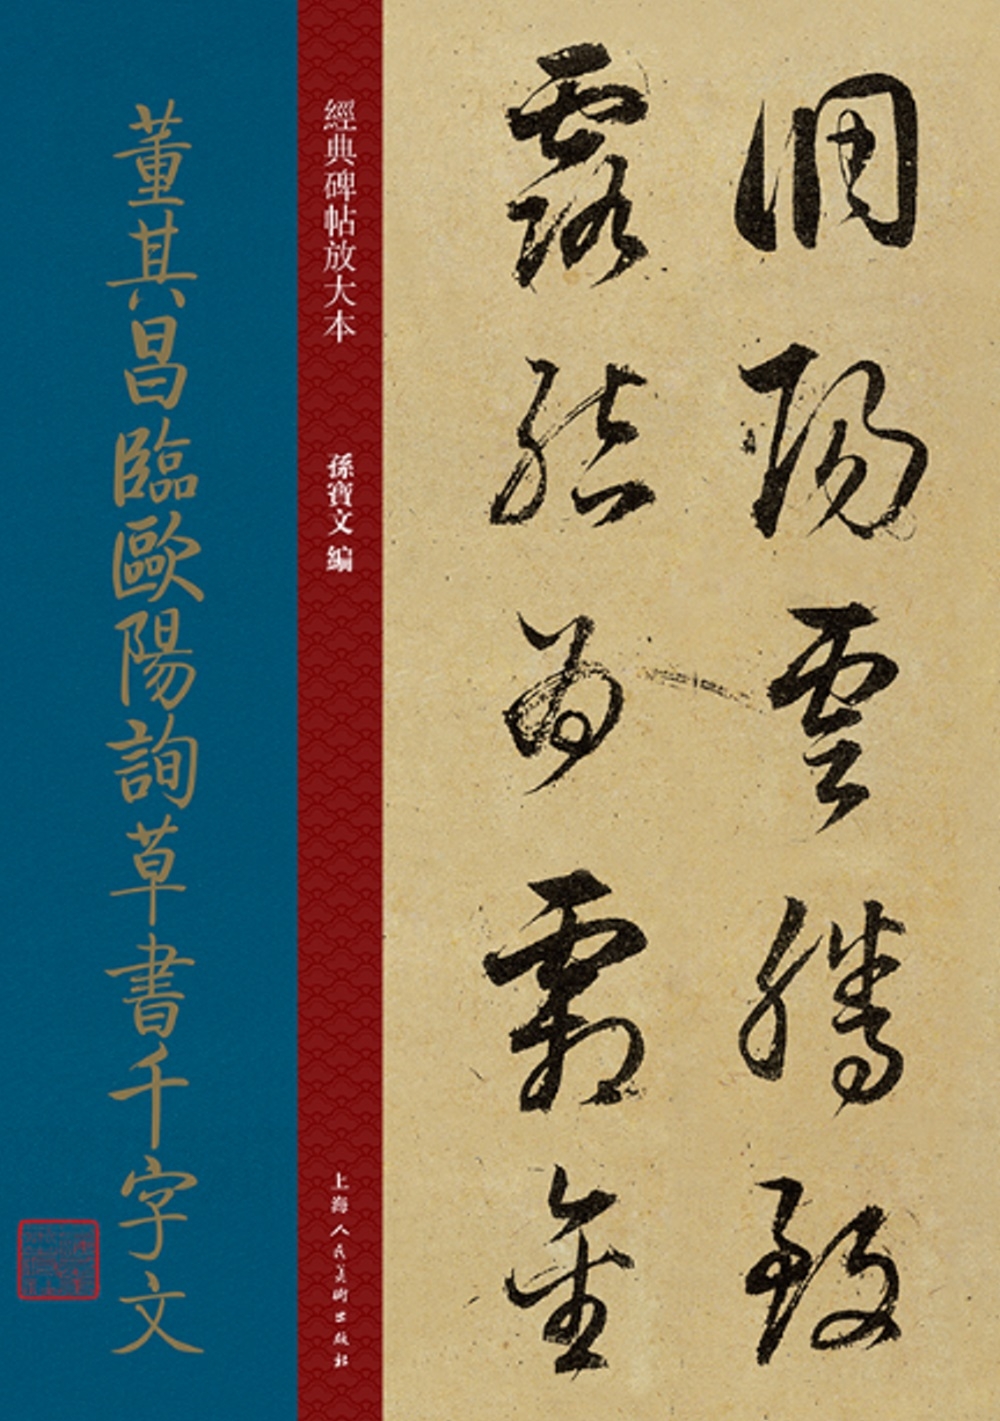 調陽雲騰致
露結為霜金
經典碑帖放大本
孫寶文 編
上海人民美術出版社
董其昌臨歐陽詢草書千字文